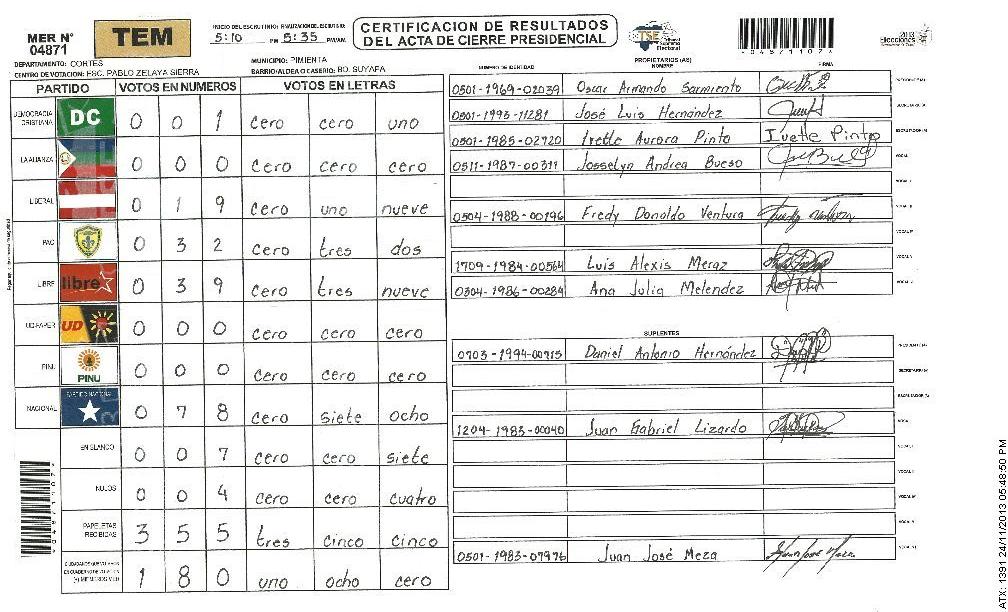 MER N° 04871
TEM
INICIO DEL ESCRUTINIO: FINALIZACION DEL ESCRUTINIO:
5:10 PM 5:35 P.M/AM.
CERTIFICACION DE RESULTADOS
DEL ACTA DE CIERRE PRESIDENCIAL
TSE Tribunal Supremo Electoral
*048711027*
2013 Elecciones
DEPARTAMENTO: CORTES
MUNICIPIO: PIMIENTA
CENTRO DE VOTACION: ESC. PABLO ZELAYA SIERRA
BARRIO/ALDEA O CASERIO: BO. SUYAPA
PARTIDO VOTOS EN NUMEROS VOTOS EN LETRAS
DEMOCRACIA CRISTIANA DC 0 0 1 cero cero uno
LA ALIANZA 0 0 0 cero cero cero
LIBERAL 0 1 9 cero uno nueve
PAC 0 3 2 cero tres dos
LIBRE libre 0 3 9 cero tres nueve
UD-FAPER UD 0 0 0 cero cero cero
PINU PINU 0 0 0 cero cero cero
NACIONAL PARTIDO NACIONAL 0 7 8 cero siete ocho
EN BLANCO 0 0 7 cero cero siete
NULOS 0 0 4 cero cero cuatro
PAPELETAS RECIBIDAS 3 5 5 tres cinco cinco
1 8 0 uno ocho cero
PROPIETARIOS (AS)
NUMERO DE IDENTIDAD NOMBRE FIRMA
0501-1969-02039 Oscar Armando Sarmiento PRESIDENTE (A)
0801-1993-11281 José Luis Hernández SECRETARIO (A)
0501-1985-02720 Ivette Aurora Pinto Ivette Pinto ESCRUTADOR (A)
0511-1987-00311 Josselyn Andrea Bueso VOCAL I
VOCAL II
0504-1988-00196 Fredy Donaldo Ventura VOCAL III
VOCAL IV
1709-1984-00564 Luis Alexis Meraz VOCAL V
0304-1986-00284 Ana Julia Melendez
SUPLENTES
0703-1994-00915 Daniel Antonio Hernández PRESIDENTE (A)
SECRETARIO (A)
ESCRUTADOR (A)
1204-1983-00040 Juan Gabriel Lizardo VOCAL I
VOCAL II
VOCAL III
VOCAL IV
VOCAL V
0501-1983-07976 Juan José Meza Juan José Meza
ATX: 1391 24/11/2013 05:48:50 PM